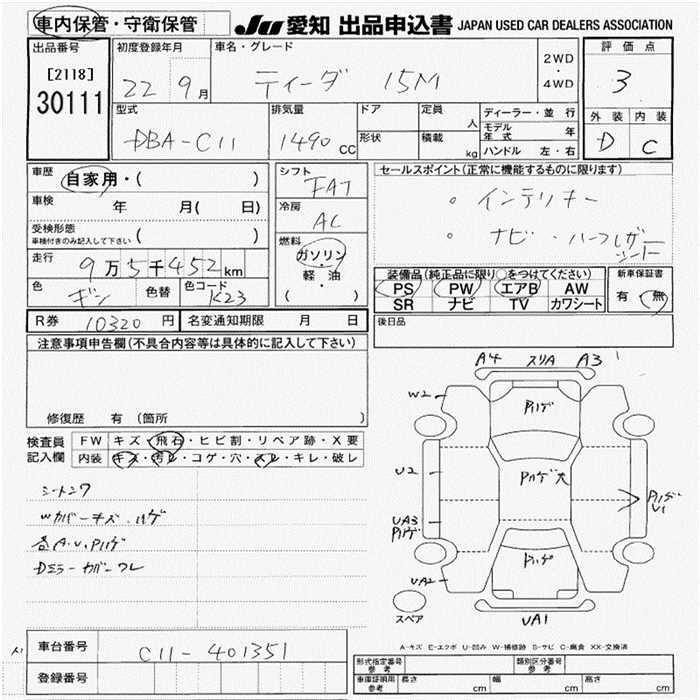 車内保管・守衛保管 JU 愛知 出品申込書 JAPAN USED CAR DEALERS ASSOCIATION
出品番号 初度登録年月 車名・グレード 評価点
[2118]
30111
22 9月 ティーダ 15M 2WD・4WD 3
型式 排気量 ドア 定員 人 ディーラー・並行 外装 内装
DBA-C11 1490cc 形状 積載 kg モデル年式 年 D C
ハンドル 左・右
車歴 自家用・( ) シフト FAT セールスポイント(正常に機能するものに限ります)
車検 年 月(日) 冷房 AC ・インテリキー
受検形態 ( )
車検付きのみ記入して下さい
燃料 ガソリン・軽・油 ( ) ・ナビ・ハーフレザーシート
走行 9万5千452km
装備品(純正品に限り○をつけてください) 新車保証書
色 ギン 色替 色コード K23 PS PW エアB AW 有 無
SR ナビ TV カワシート
R券 10320円 名変通知期限 月 日 後日品
注意事項申告欄(不具合内容等は具体的に記入して下さい)
修復歴 有 (箇所 )
検査員記入欄 FW キズ・飛石・ヒビ割・リペア跡・X要
内装 キズ・汚レ・コゲ・穴・スレ・キレ・破レ
シートシワ
Wカバーキズ・ハゲ
各A.U.Pハゲ
Dミラーカバーワレ
A4 スリA A3
W2 Pハゲ
U2 Pハゲ大 Pハゲ U1
UA3
Pハゲ
UA2 Pハゲ
スペア UA1
A-キズ E-エクボ U-凹み W-補修跡 S-サビ C-腐食 XX-交換済
車台番号 C11-401351
登録番号
形式指定番号 参考 類別区分番号 参考
車庫証明用 参考 長さ cm 幅 cm 高さ cm